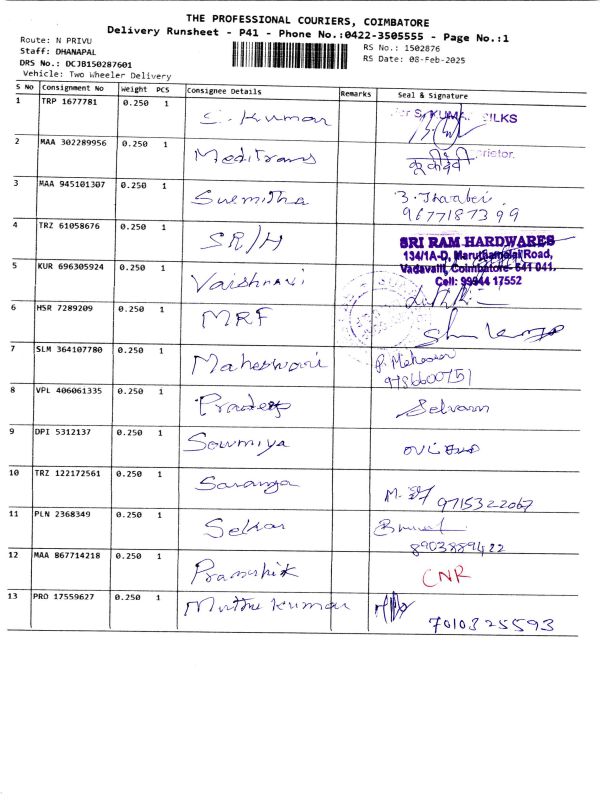 THE PROFESSIONAL COURIERS, COIMBATORE
Delivery Runsheet - P41 - Phone No.:0422-3505555 - Page No.:1
Route: N PRIVU
RS No.: 1502876
Staff: DHANAPAL
RS Date: 08-Feb-2025
DRS No.: DCJB150287601
Vehicle: Two Wheeler Delivery
S No Consignment No Weight PCS Consignee Details Remarks Seal & Signature
1 TRP 1677781 0.250 1 S. Kumar SILKS
2 MAA 302289956 0.250 1 Meditrans prietor
3 MAA 945101307 0.250 1 Suemitha
9677187399
4 TRZ 61058676 0.250 1 SR/H SRI RAM HARDWARES
134/1A-D, Maruthamalai Road,
Vadavalli, Coimbatore- 641 041.
Cell: 99944 17552
5 KUR 696305924 0.250 1 Varshnavi
6 HSR 7289209 0.250 1 MRF
7 SLM 364107780 0.250 1 Maheswari
9786600751
8 VPL 406061335 0.250 1 Pradeep Selvam
9 DPI 5312137 0.250 1 Sowmiya
10 TRZ 122172561 0.250 1 Saranya M. 9715322067
11 PLN 2368349 0.250 1 Sekar
8903889422
12 MAA 867714218 0.250 1 CNR
13 PRO 17559627 0.250 1 Muthu kumar
7010325593